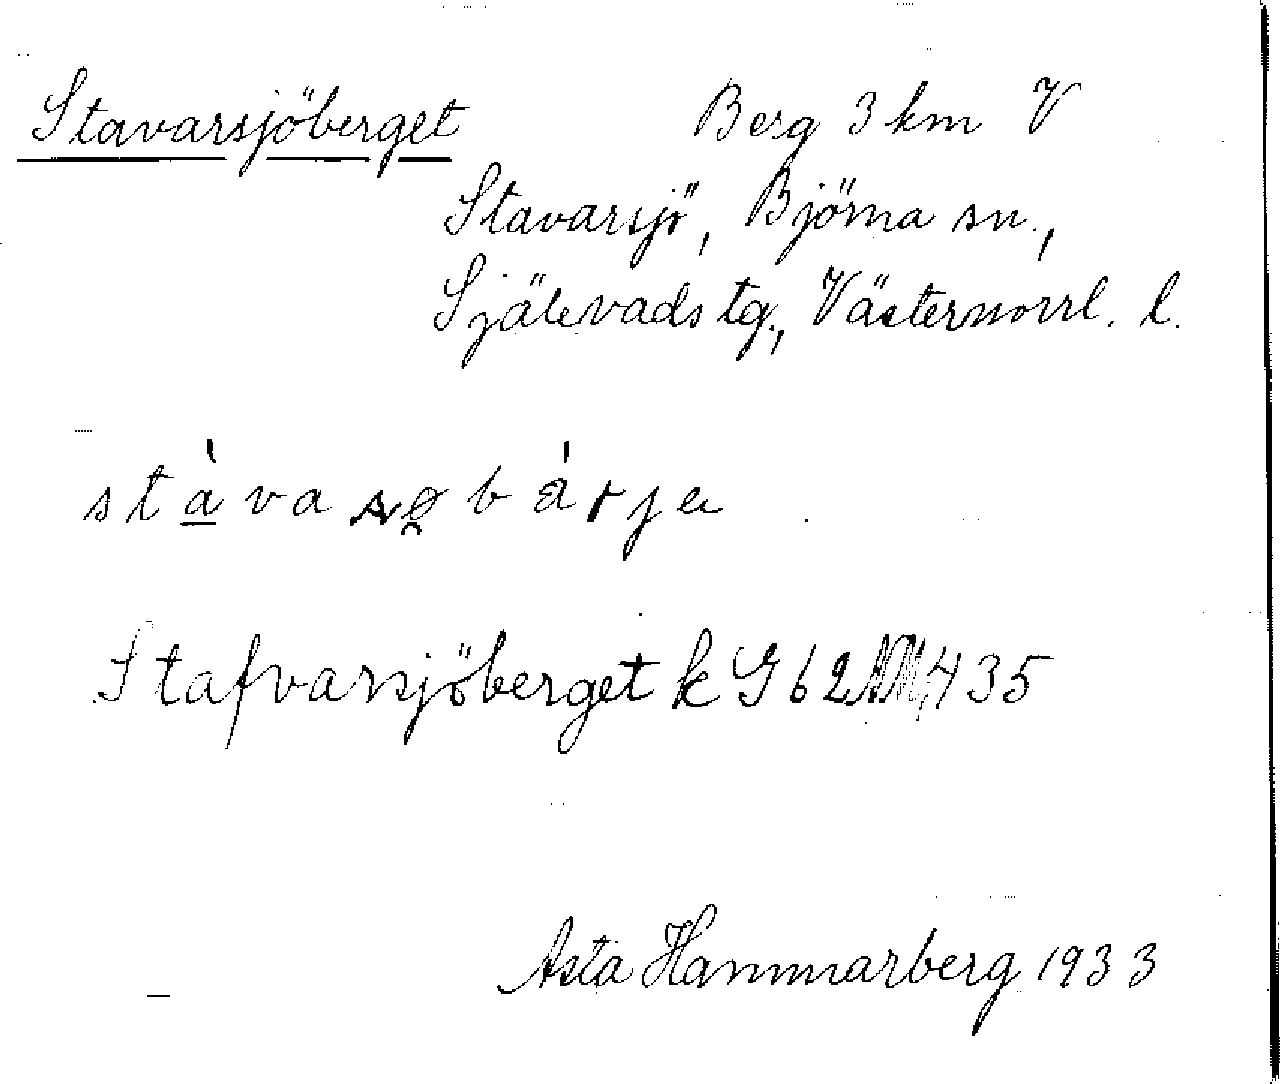 Stavarsjöberget Berg 3 km V
Stavarsjö, Björna sn.,
Själevads tg., Västernorrl. l.
Stafvarsjöberget k G 62 435
Asta Hammarberg 1933